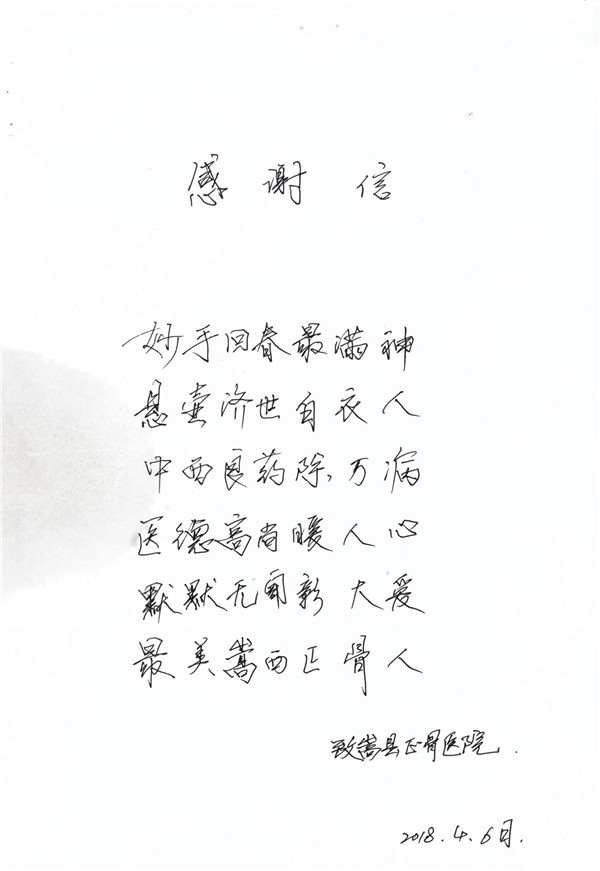 感谢信
妙手回春最满神
悬壶济世白衣人
中西良药除、万病
医德高尚暖人心
默默无闻彰大爱
最美嵩西正骨人
致嵩县正骨医院.
2018.4.6日.